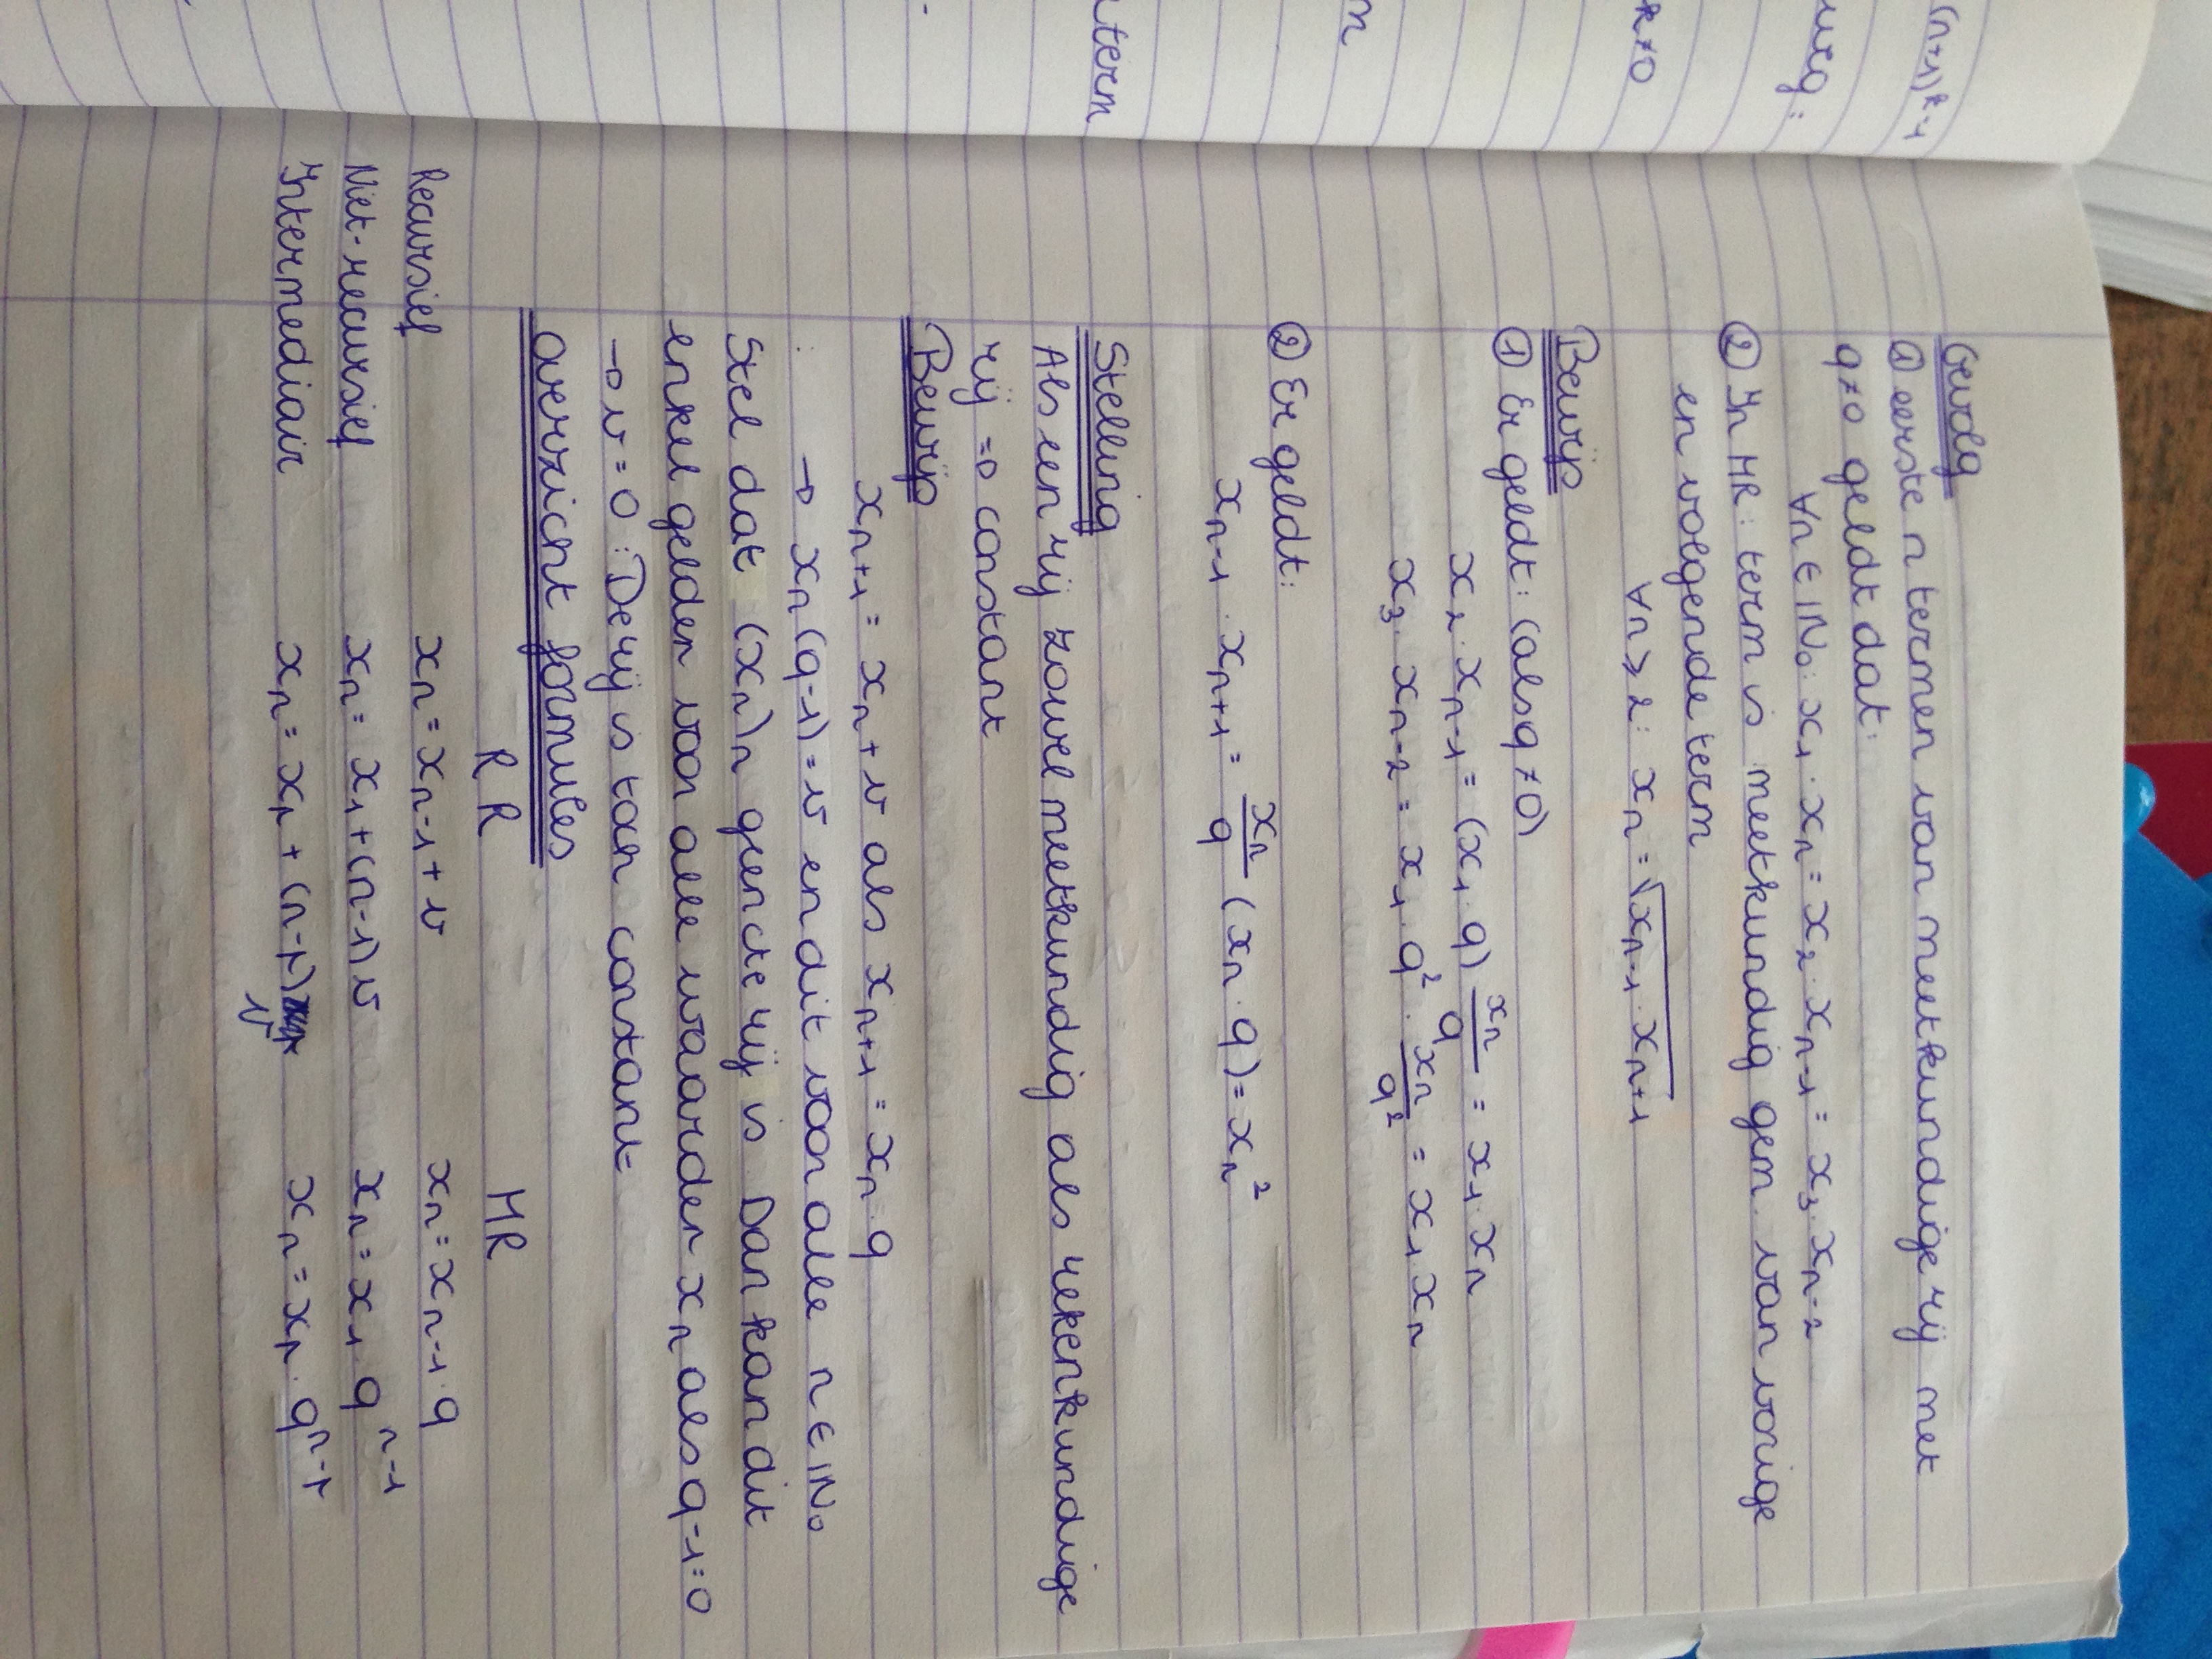 (n+1)k-1
k≠0
n
term
Gevolg
① eerste n termen van meetkundige rij met
q≠0 geldt dat:
∀n ∈ ℕ₀: x₁·xₙ = x₂·xₙ₋₁ = x₃·xₙ₋₂
② In MR: term is meetkundig gem. van vorige
en volgende term
∀n ≥ 2: xₙ = √(xₙ₋₁·xₙ₊₁)
Bewijs
① Er geldt: (als q≠0)
x₂·xₙ₋₁ = (x₁·q) xₙ/q = x₁·xₙ
x₃·xₙ₋₂ = x₁·q²·xₙ/q² = x₁xₙ
② Er geldt:
xₙ₋₁·xₙ₊₁ = xₙ/q (xₙ·q) = xₙ²
Stelling
Als een rij zowel meetkundig als rekenkundige
rij ⇒ constant
Bewijs
xₙ₊₁ = xₙ + v als xₙ₊₁ = xₙ·q
: → xₙ(q-1) = v en dit voor alle n ∈ ℕ₀
Stel dat (xₙ)ₙ geen cte rij is Dan kan dit
enkel gelden voor alle waarden xₙ als q-1=0
→ v=0: De rij is tan constant
overzicht formules
RR MR
Recursief xₙ = xₙ₋₁ + v xₙ = xₙ₋₁·q
Niet-recursief xₙ = x₁ + (n-1)v xₙ = x₁·qⁿ⁻¹
Intermediair xₙ = xᵣ + (n-r) v xₙ = xᵣ·qⁿ⁻ʳ